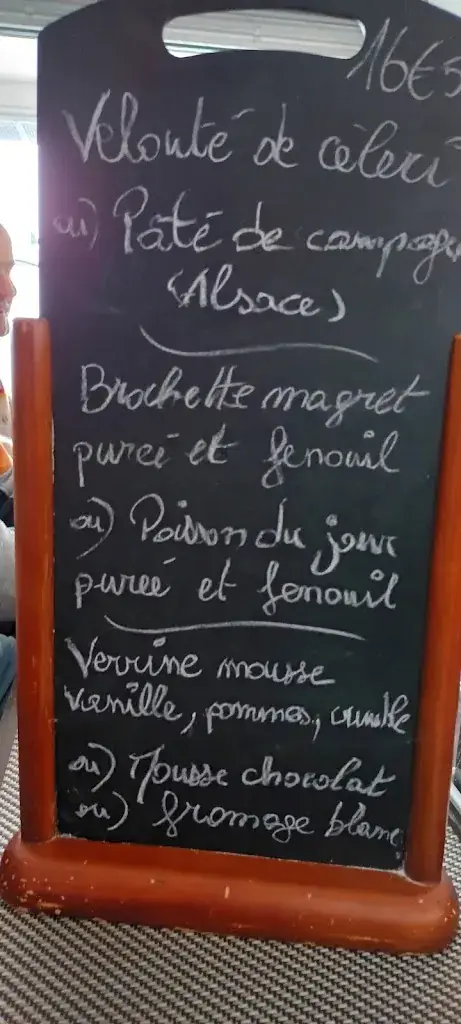 16€5
Velouté de céleri
ou) Pâté de campagn
(Alsace)
Brochette magret
pureé et fenouil
ou) Poisson du jour
pureé et fenouil
Verrine mousse
vanille, pommes, crumble
ou) Mousse chocolat
ou) fromage blanc